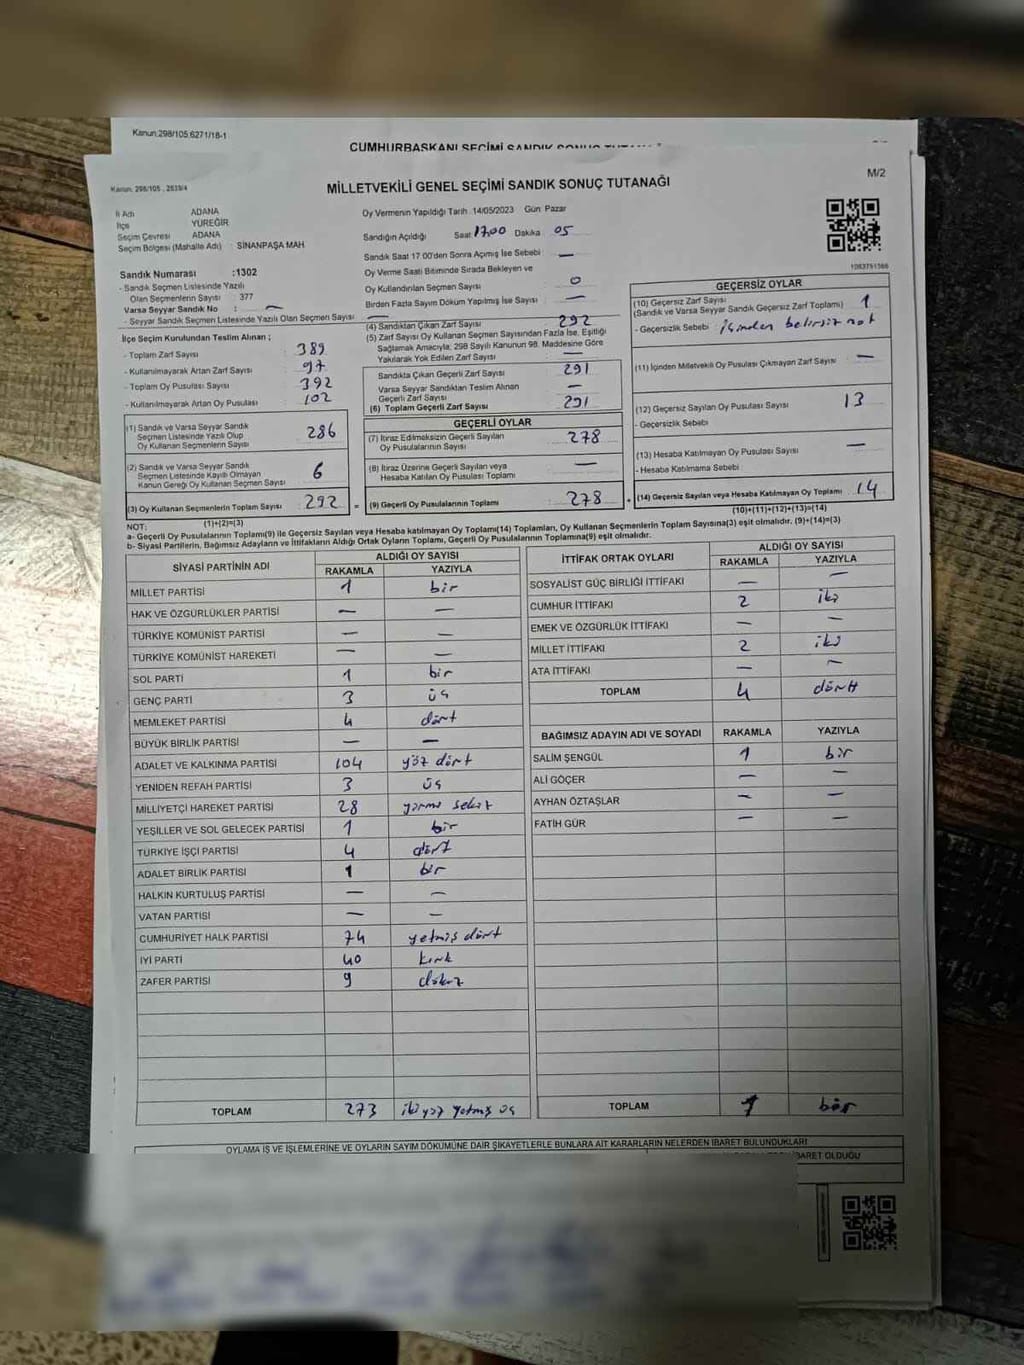 Kanun:298/105,6271/18-1
CUMHURBAŞKANI SEÇİMİ SANDIK SONUÇ TUTANAĞI
Kanun: 298/105 , 2839/4
MİLLETVEKİLİ GENEL SEÇİMİ SANDIK SONUÇ TUTANAĞI
M/2
İl Adı ADANA
İlçe YÜREĞİR
Seçim Çevresi ADANA
Seçim Bölgesi (Mahalle Adı) : SİNANPAŞA MAH.
Oy Vermenin Yapıldığı Tarih :14/05/2023 Gün: Pazar
Sandığın Açıldığı Saat 17.00 Dakika 05
Sandık Saat 17:00'den Sonra Açılmış İse Sebebi —
Oy Verme Saati Bitiminde Sırada Bekleyen ve
Oy Kullandırılan Seçmen Sayısı 0
Birden Fazla Sayım Döküm Yapılmış İse Sayısı —
Sandık Numarası :1302
- Sandık Seçmen Listesinde Yazılı
Olan Seçmenlerin Sayısı : 377
Varsa Seyyar Sandık No : —
- Seyyar Sandık Seçmen Listesinde Yazılı Olan Seçmen Sayısı —
İlçe Seçim Kurulundan Teslim Alınan ;
- Toplam Zarf Sayısı : 389
- Kullanılmayarak Artan Zarf Sayısı : 97
- Toplam Oy Pusulası Sayısı : 392
- Kullanılmayarak Artan Oy Pusulası : 102
(1) Sandık ve Varsa Seyyar Sandık
Seçmen Listesinde Yazılı Olup
Oy Kullanan Seçmenlerin Sayısı 286
(2) Sandık ve Varsa Seyyar Sandık
Seçmen Listesinde Kayıtlı Olmayan
Kanun Gereği Oy Kullanan Seçmen Sayısı 6
(3) Oy Kullanan Seçmenlerin Toplam Sayısı 292
(1)+(2)=(3)
(4) Sandıktan Çıkan Zarf Sayısı 292
(5) Zarf Sayısı Oy Kullanan Seçmen Sayısından Fazla İse, Eşitliği
Sağlamak Amacıyla; 298 Sayılı Kanunun 98. Maddesine Göre
Yakılarak Yok Edilen Zarf Sayısı —
Sandıkta Çıkan Geçerli Zarf Sayısı 291
Varsa Seyyar Sandıktan Teslim Alınan
Geçerli Zarf Sayısı —
(6) Toplam Geçerli Zarf Sayısı 291
GEÇERLİ OYLAR
(7) İtiraz Edilmeksizin Geçerli Sayılan
Oy Pusulasının Sayısı 278
(8) İtiraz Üzerine Geçerli Sayılan veya
Hesaba Katılan Oy Pusulası Toplamı —
= (9) Geçerli Oy Pusulalarının Toplamı 278 +
1083751566
GEÇERSİZ OYLAR
(10) Geçersiz Zarf Sayısı
(Sandık ve Varsa Seyyar Sandık Geçersiz Zarf Toplamı) 1
- Geçersizlik Sebebi : içinden belirsiz not
(11) İçinden Milletvekili Oy Pusulası Çıkmayan Zarf Sayısı —
(12) Geçersiz Sayılan Oy Pusulası Sayısı 13
- Geçersizlik Sebebi
(13) Hesaba Katılmayan Oy Pusulası Sayısı —
- Hesaba Katılmama Sebebi
(14) Geçersiz Sayılan veya Hesaba Katılmayan Oy Toplamı 14
(10)+(11)+(12)+(13)=(14)
NOT:
a- Geçerli Oy Pusulasının Toplamı(9) ile Geçersiz Sayılan veya Hesaba katılmayan Oy Toplamı(14) Toplamları, Oy Kullanan Seçmenlerin Toplam Sayısına(3) eşit olmalıdır. (9)+(14)=(3)
b- Siyasi Partilerin, Bağımsız Adayların ve İttifakların Aldığı Ortak Oyların Toplamı, Geçerli Oy Pusulalarının Toplamına(9) eşit olmalıdır.
SİYASİ PARTİNİN ADI ALDIĞI OY SAYISI
RAKAMLA YAZIYLA
MİLLET PARTİSİ 1 bir
HAK VE ÖZGÜRLÜKLER PARTİSİ — —
TÜRKİYE KOMÜNİST PARTİSİ — —
TÜRKİYE KOMÜNİST HAREKETİ — —
SOL PARTİ 1 bir
GENÇ PARTİ 3 üç
MEMLEKET PARTİSİ 4 dört
BÜYÜK BİRLİK PARTİSİ — —
ADALET VE KALKINMA PARTİSİ 104 yüz dört
YENİDEN REFAH PARTİSİ 3 üç
MİLLİYETÇİ HAREKET PARTİSİ 28 yirmi sekiz
YEŞİLLER VE SOL GELECEK PARTİSİ 1 bir
TÜRKİYE İŞÇİ PARTİSİ 4 dört
ADALET BİRLİK PARTİSİ 1 bir
HALKIN KURTULUŞ PARTİSİ — —
VATAN PARTİSİ — —
CUMHURİYET HALK PARTİSİ 74 yetmiş dört
İYİ PARTİ 40 kırk
ZAFER PARTİSİ 9 dokuz
TOPLAM 273 ikiyüz yetmiş üç
İTTİFAK ORTAK OYLARI ALDIĞI OY SAYISI
RAKAMLA YAZIYLA
SOSYALİST GÜÇ BİRLİĞİ İTTİFAKI — —
CUMHUR İTTİFAKI 2 iki
EMEK VE ÖZGÜRLÜK İTTİFAKI — —
MİLLET İTTİFAKI 2 iki
ATA İTTİFAKI — —
TOPLAM 4 dört
BAĞIMSIZ ADAYIN ADI VE SOYADI RAKAMLA YAZIYLA
SALİM ŞENGÜL 1 bir
ALİ GÖÇER — —
AYHAN ÖZTAŞLAR — —
FATİH GÜR — —
TOPLAM 1 bir
OYLAMA İŞ VE İŞLEMLERİNE VE OYLARIN SAYIM DÖKÜMÜNE DAİR ŞİKAYETLERLE BUNLARA AİT KARARLARIN NELERDEN İBARET BULUNDUKLARI
İBARET OLDUĞU